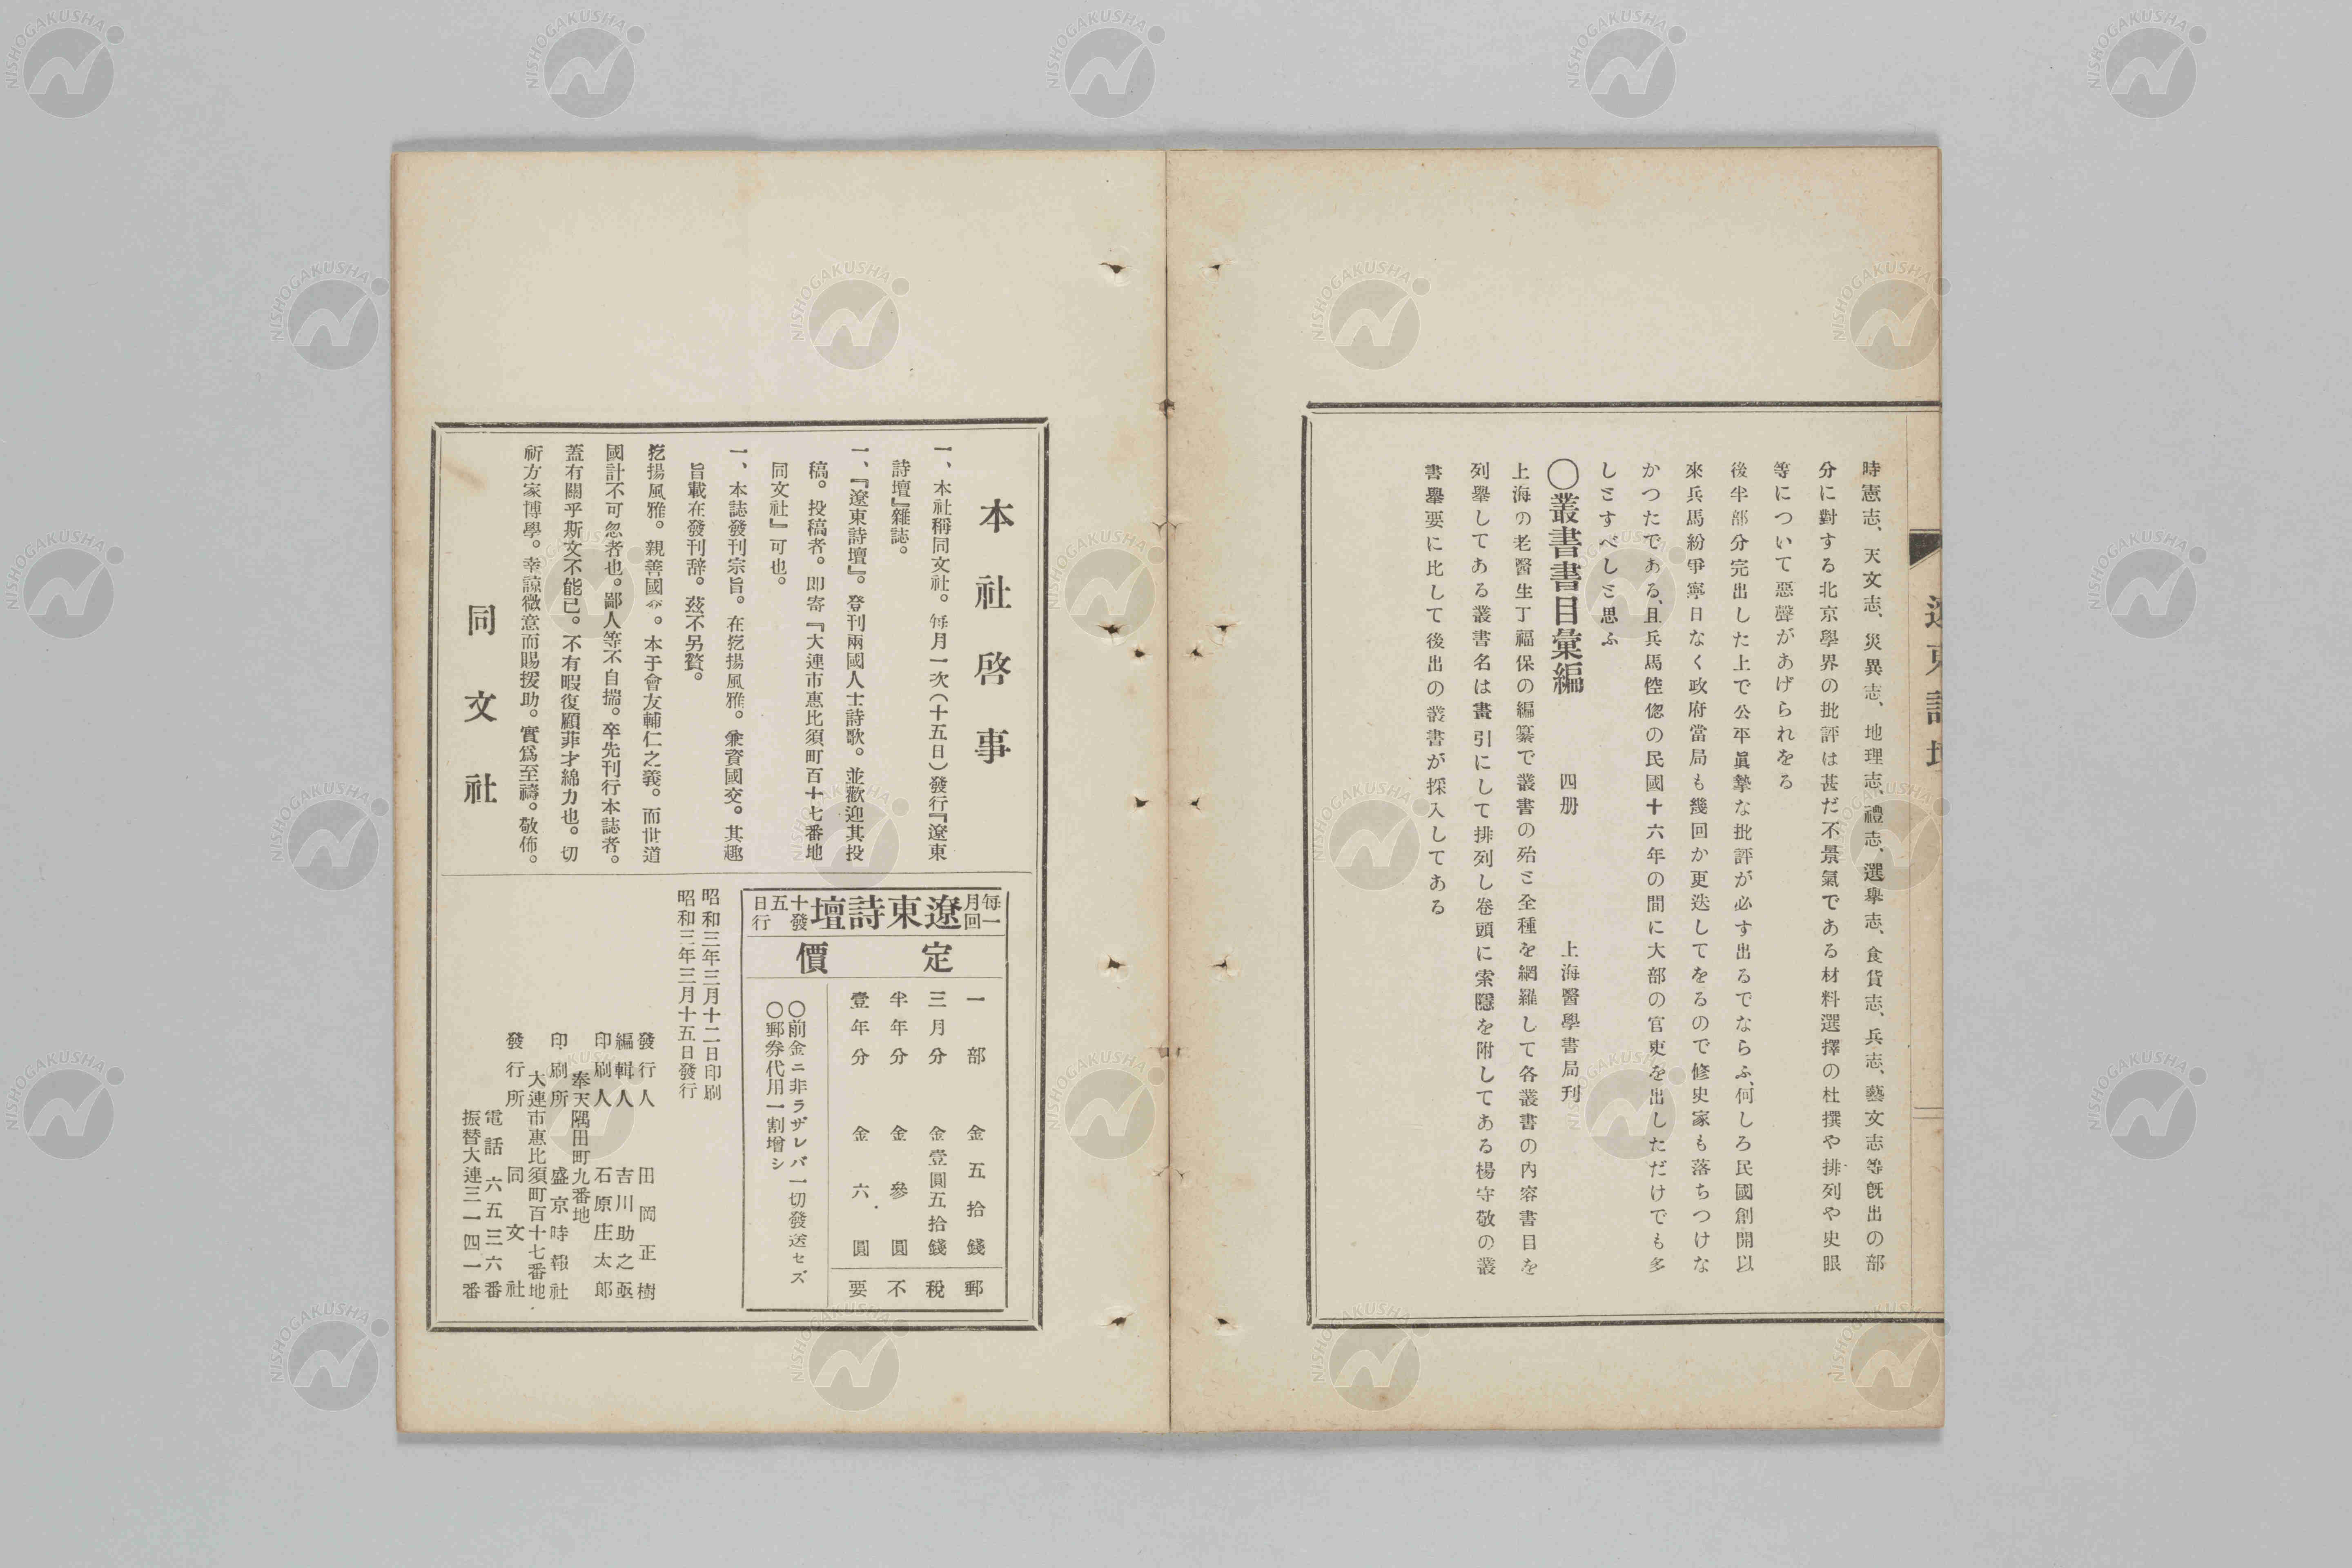 遼東詩壇
時憲志、天文志、災異志、地理志、禮志、選擧志、食貨志、兵志、藝文志等旣出の部
分に對する北京學界の批評は甚だ不景氣である材料選擇の杜撰や排列や史眼
等について惡聲があげられをる
後半部分完出した上で公平眞摯な批評が必す出るでならふ、何しろ民國創開以
來兵馬紛爭寧日なく政府當局も幾回か更迭してをるので修史家も落ちつけな
かつたである、且兵馬倥偬の民國十六年の間に大部の官吏を出しただけでも多
しとすべしと思ふ
〇叢書書目彙編 四册 上海醫學書局刊
上海の老醫生丁福保の編纂で叢書の殆と全種を網羅して各叢書の内容書目を
列擧してある叢書名は畫引にして排列し卷頭に索隱を附してある楊守敬の叢
書擧要に比して後出の叢書が採入してある
本社啓事
一、本社稱同文社。每月一次(十五日)發行『遼東
詩壇』雜誌。
一、『遼東詩壇』。登刊兩國人士詩歌。並歡迎其投
稿。投稿者。卽寄『大連市惠比須町百十七番地
同文社』可也。
一、本誌發刊宗旨。在扢揚風雅。兼資國交。其趣
旨載在發刊辞。玆不另贅。
扢揚風雅。親善國交。本于會友輔仁之義。而世道
國計不可忽者也。鄙人等不自揣。卒先刊行本誌者。
蓋有關乎斯文不能已。不有暇復顧菲才綿力也。切
祈方家博學。幸諒微意而賜援助。實爲至禱。敬佈。
同文社
每月一回 遼東詩壇 十五日發行
定價
一部 金五拾錢 郵
三月分 金壹圓五拾錢 稅
半年分 金參圓 不
壹年分 金六圓 要
〇前金ニ非ラザレバ一切發送セズ
〇郵券代用一割增シ
昭和三年三月十二日印刷
昭和三年三月十五日發行
發行人 田岡正樹
編輯人 吉川助之亟
印刷人 石原庄太郎
奉天隅田町九番地
印刷所 盛京時報社
大連市惠比須町百十七番地
發行所 同文社
電話六五三六番
振替大連三一四一番
NISHOGAKUSHA